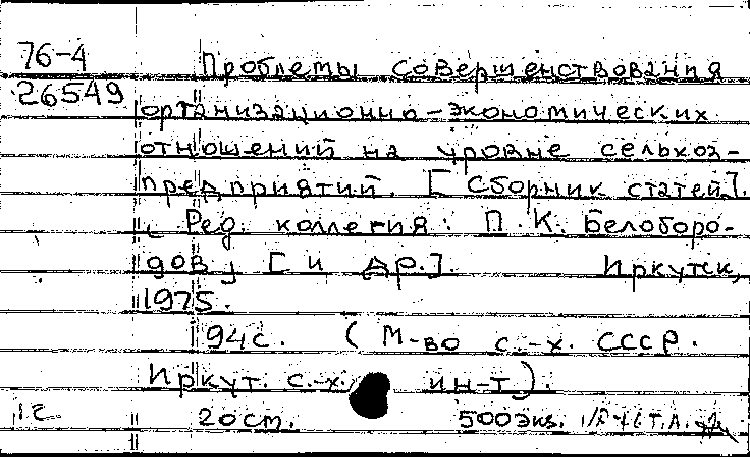 76-4
26549
Проблемы совершенствования
организационно-экономических
отношений на уровне сельхоз-
предприятий. [Сборник статей].
Ред. коллегия: П. К. Белоборо-
дов, [и др.]. Иркутск,
1975.
94с. (М-во с.-х. СССР.
Иркут. с.-х. ин-т).
1с 20 cm. 500 экз.